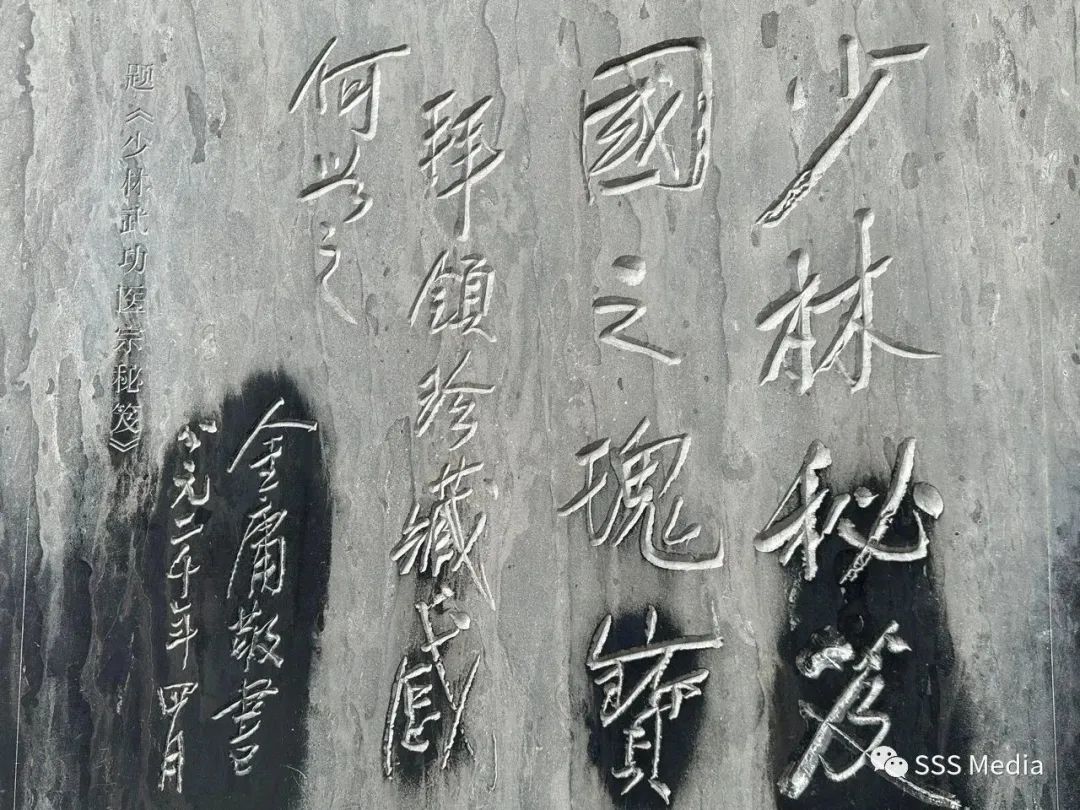 少林秘笈
國之瑰寶
拜領珍藏
何之
金庸敬書
公元二千年 四月
题《少林武功医宗秘笈》
SSS Media